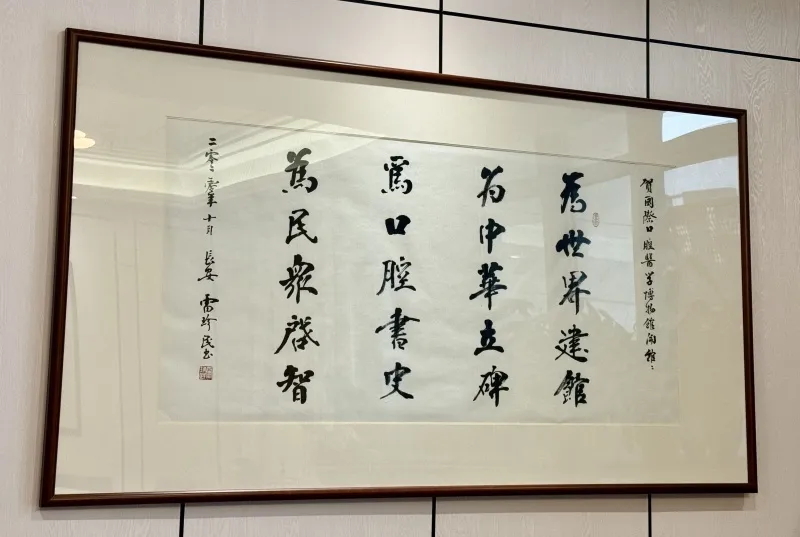 贺國際口腔醫学博物館開館
為世界建館
为中華立碑
爲口腔書史
為民衆啓智
二零二零年十月 長安 雷珍民書